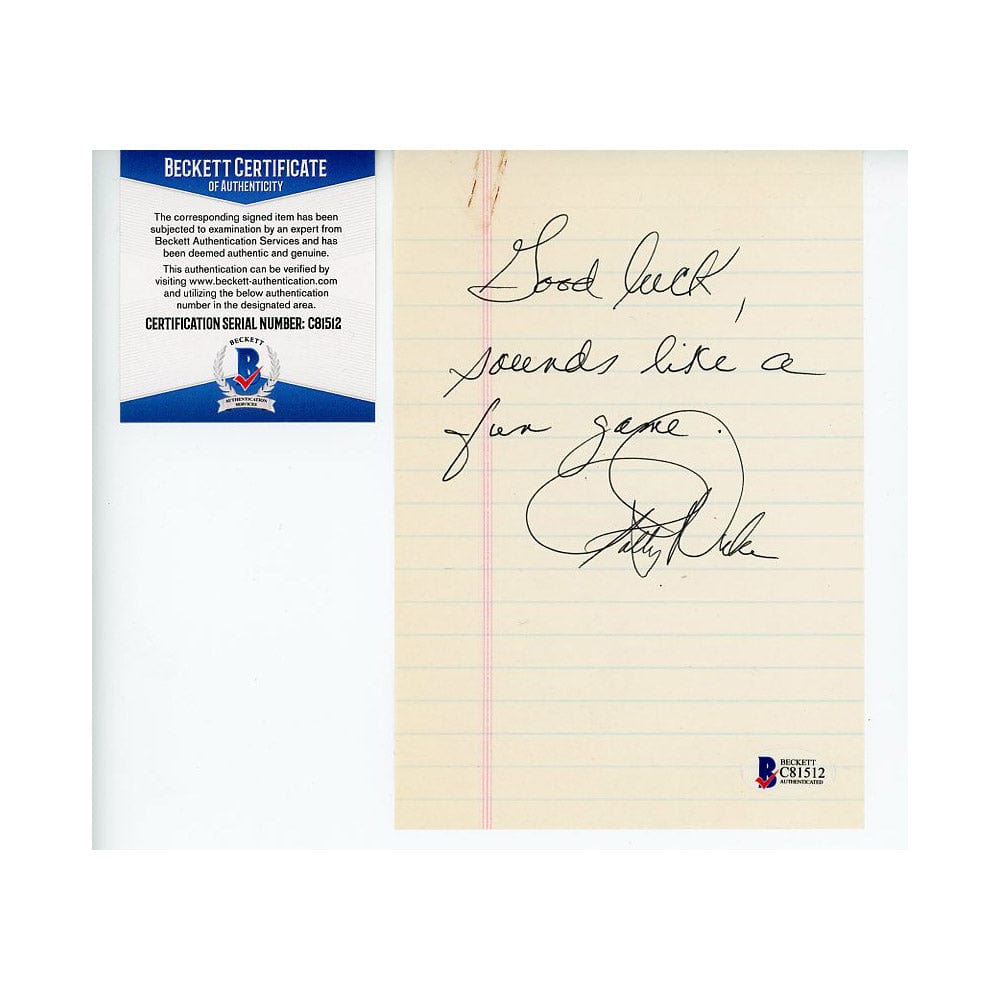 BECKETT CERTIFICATE
OF AUTHENTICITY
The corresponding signed item has been
subjected to examination by an expert from
Beckett Authentication Services and has
been deemed authentic and genuine.
This authentication can be verified by
visiting www.beckett-authentication.com
and utilizing the below authentication
number in the designated area.
CERTIFICATION SERIAL NUMBER: C81512
BECKETT
B
AUTHENTICATION
SERVICES
Good luck,
sounds like a
fun game.
Patty Duke
B
BECKETT
C81512
AUTHENTICATED